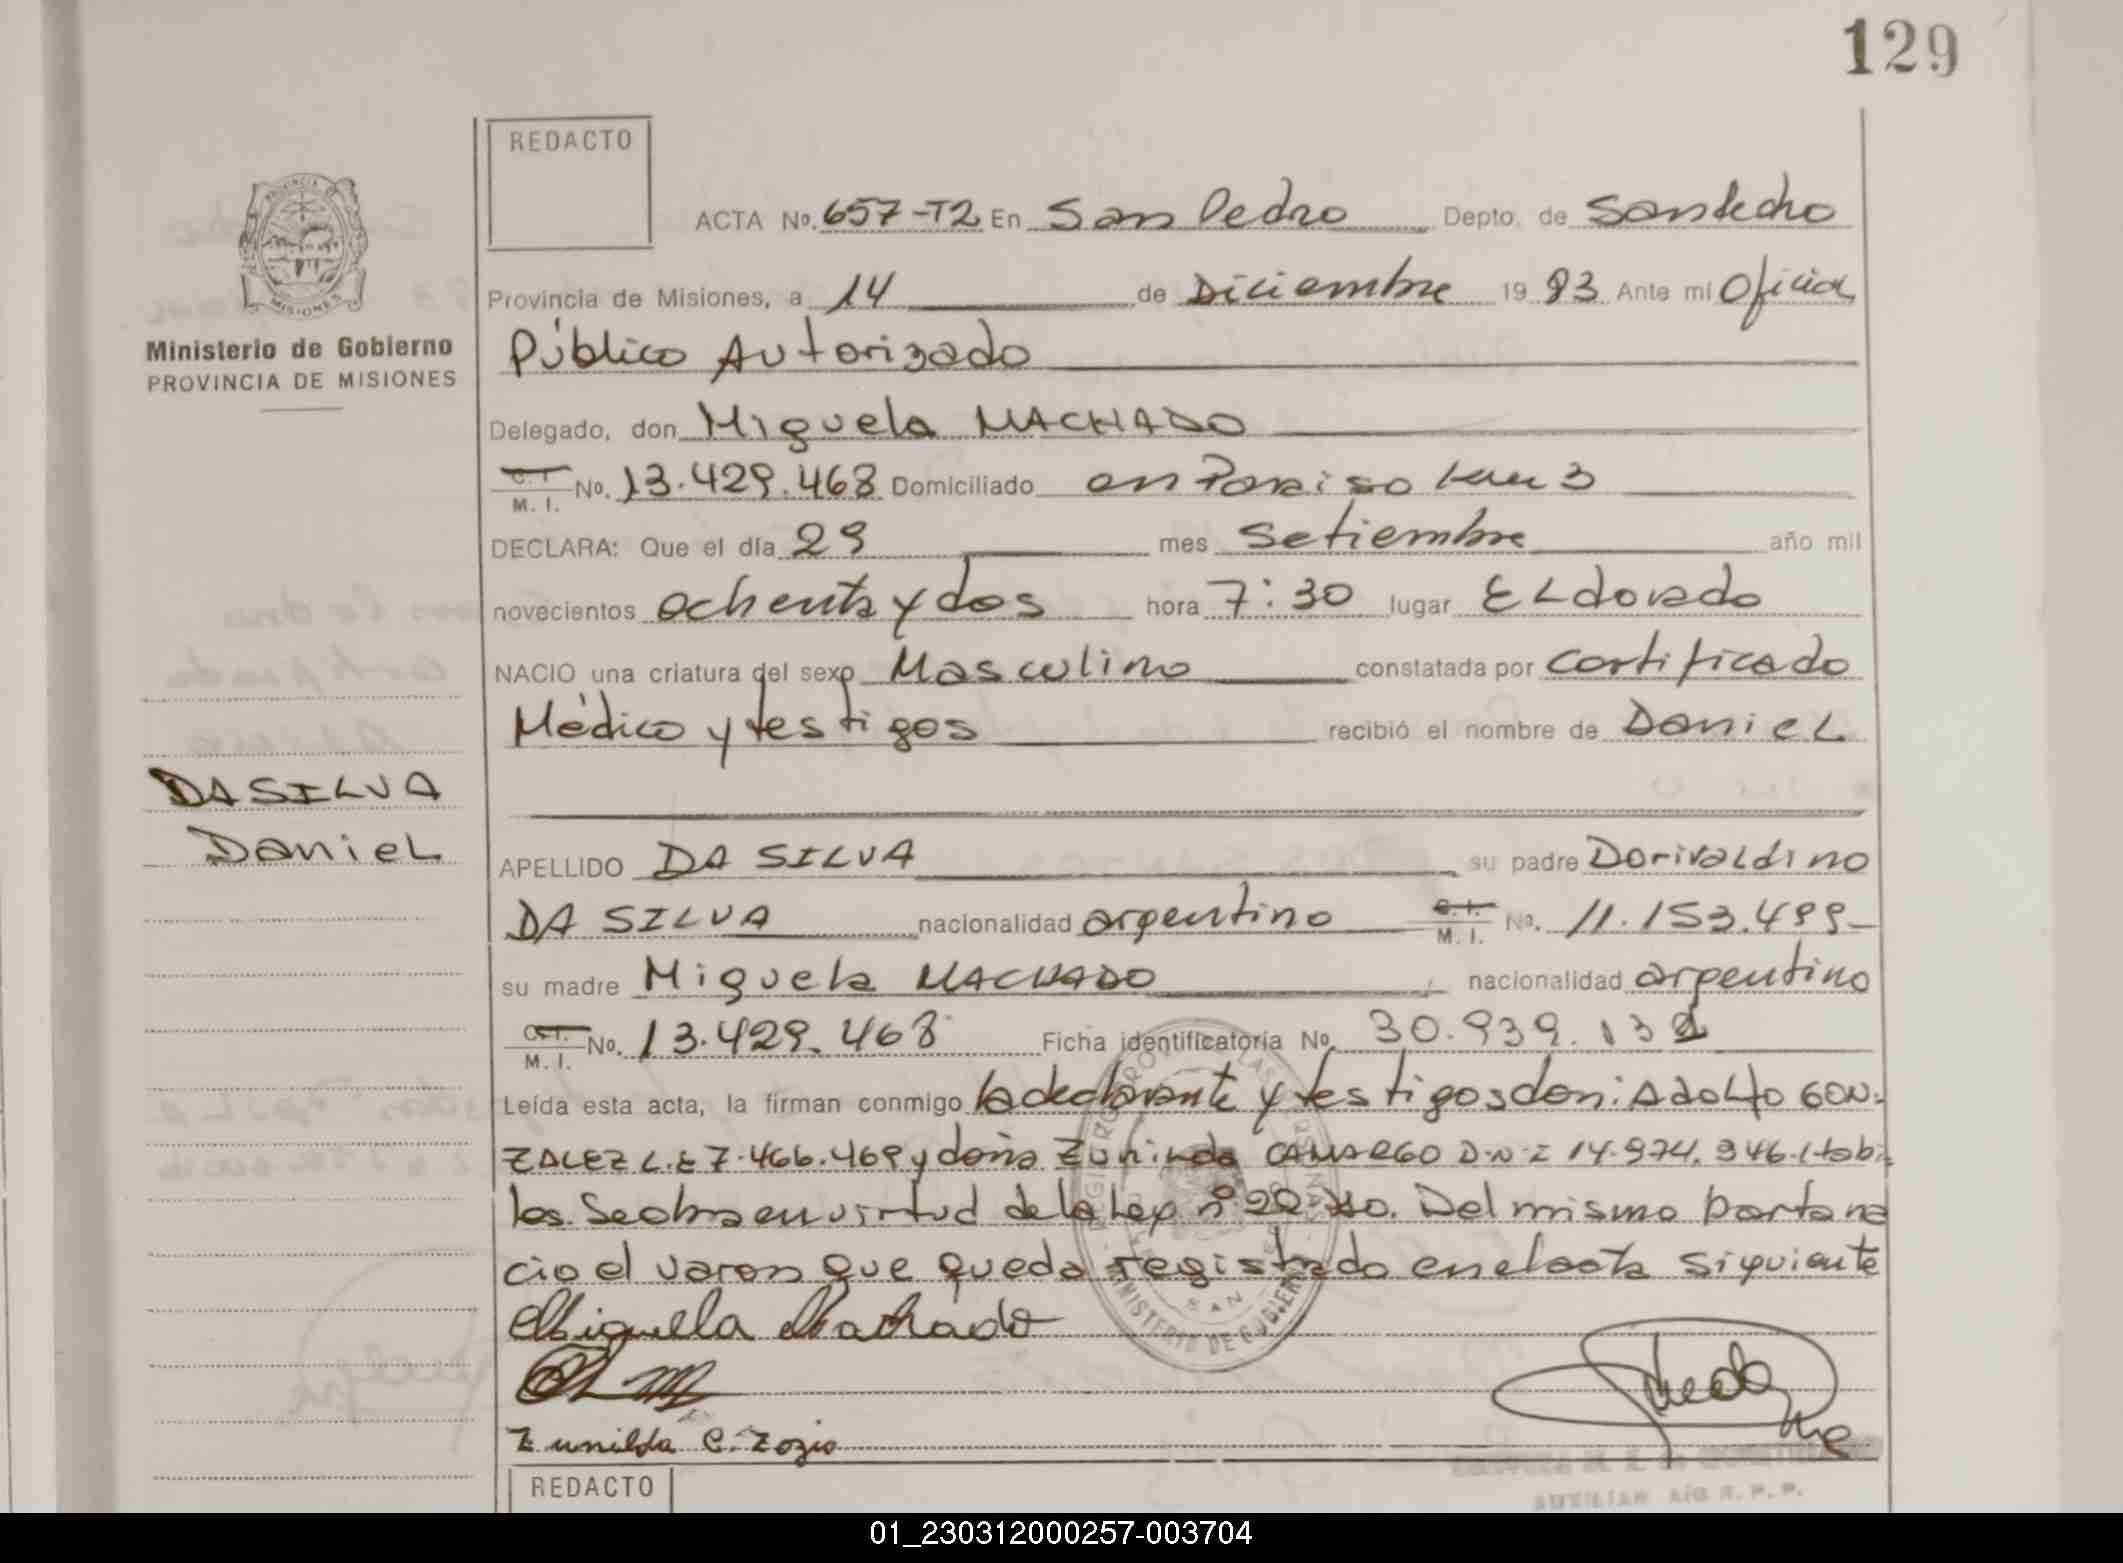 129
REDACTO
ACTA No. 657-T2 En San Pedro Depto. de San Pedro
Provincia de Misiones, a 14 de Diciembre 19 83 Ante mi Oficial
Público Autorizado
Ministerio de Gobierno
PROVINCIA DE MISIONES
Delegado, don Miguela MACHADO
C.I. M. I. No. 13.429.468 Domiciliado en Paraiso km 3
DECLARA: Que el día 29 mes Setiembre año mil
novecientos ochenta y dos hora 7:30 lugar ELdorado
NACIO una criatura del sexo Masculino constatada por certificado
Médico y testigos recibió el nombre de DanieL
DA SILVA
DanieL
APELLIDO DA SILVA su padre DorivaLdino
DA SILVA nacionalidad argentino C.I. M. I. No. 11.153.499-
su madre Miguela MACHADO nacionalidad argentino
C.I. M. I. No. 13.429.468 Ficha identificatoria No. 30.939.132
Leída esta acta, la firman conmigo la declarante y testigos don: Adolfo GON-
ZALEZ L.E 7.466.469 y doña CAMARGO D.N.I 14.974.946. Habi
les. Se obra en virtud de la Ley nº Del mismo parto na
cio el varon que queda registrado en el acta siguiente
Miguela Machado
Zunilda C.
REDACTO
MINISTERIO DE GOBIERNO
AUXILIAR
01_230312000257-003704